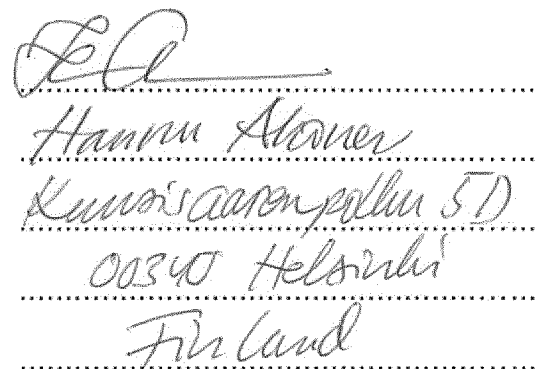 Hannu
Kuusisaarenpolku 5D
00340 Helsinki
Finland